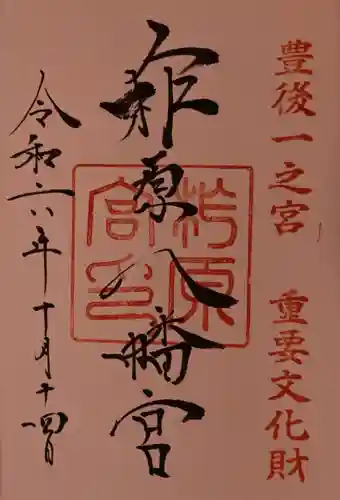 豊後一之宮 重要文化財
柞原八幡宮
令和六年十月十四日